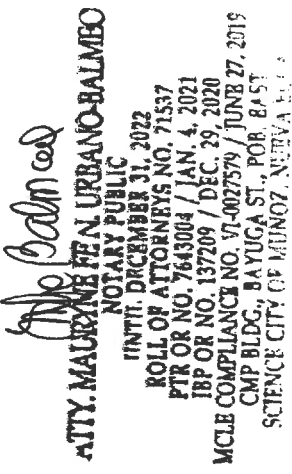 ATTY. MAURYNE FE N. URBANO-BALMEO
NOTARY PUBLIC
UNTIL DECEMBER 31, 2022
ROLL OF ATTORNEYS NO. 71537
PTR OR NO. 7643004 / JAN. 4, 2021
IBP OR NO. 137209 / DEC. 29, 2020
MCLE COMPLIANCE NO. VI-0027579 / JUNE 27, 2019
CMP BLDG., BAYUGA ST., POB. EAST
SCIENCE CITY OF MUÑOZ, NUEVA